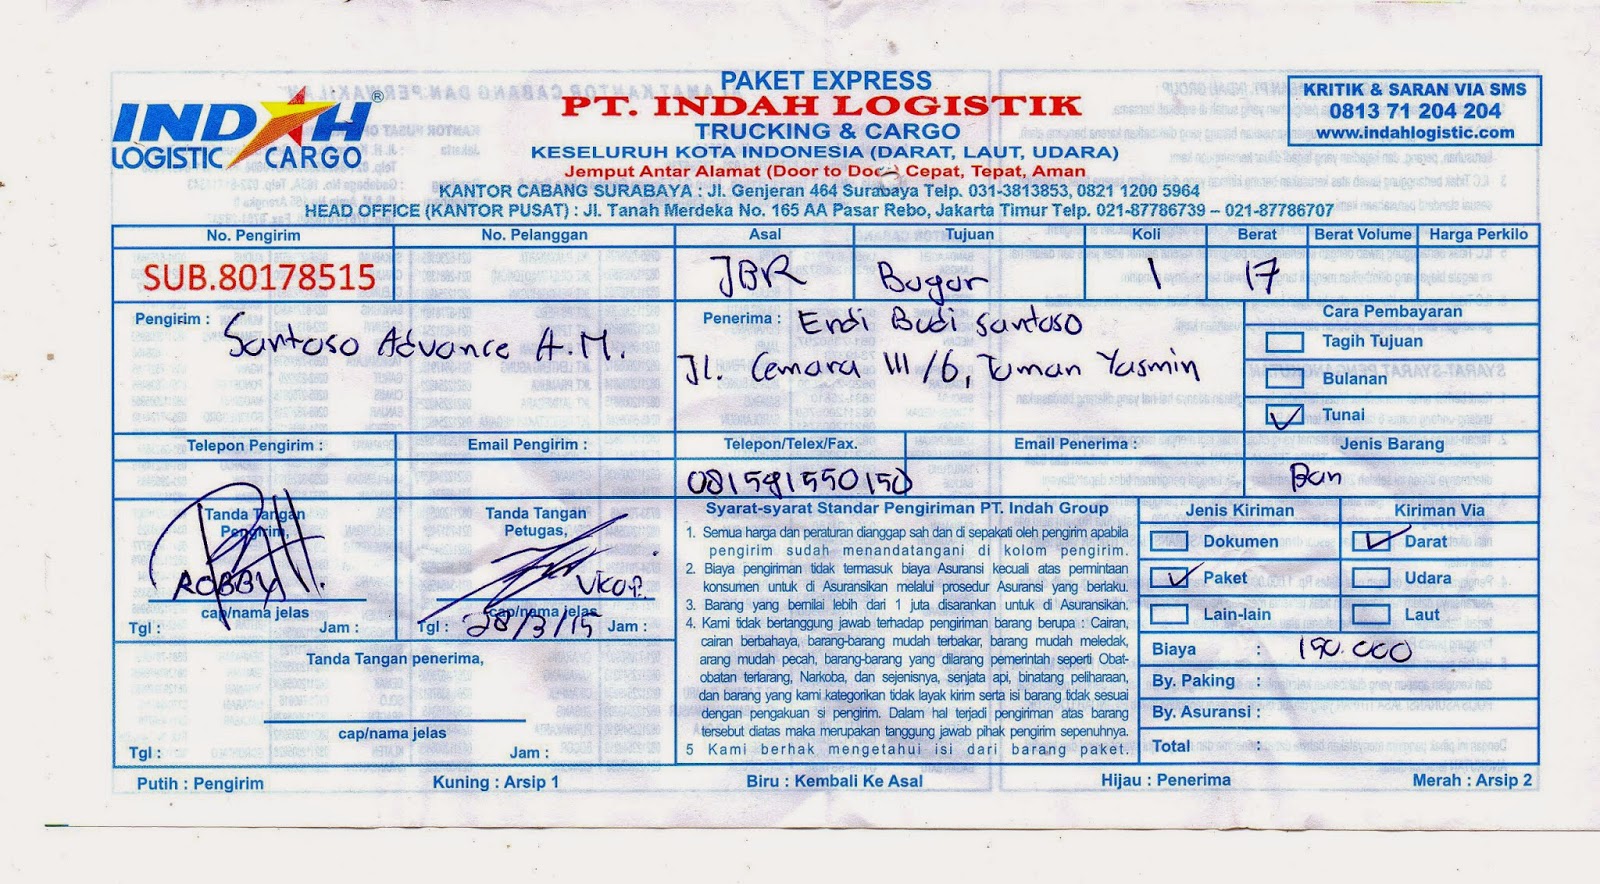 INDAH ®
LOGISTIC CARGO
PAKET EXPRESS
PT. INDAH LOGISTIK
TRUCKING & CARGO
KESELURUH KOTA INDONESIA (DARAT, LAUT, UDARA)
Jemput Antar Alamat (Door to Door) Cepat, Tepat, Aman
KANTOR CABANG SURABAYA : Jl. Genjeran 464 Surabaya Telp. 031-3813853, 0821 1200 5964
HEAD OFFICE (KANTOR PUSAT) : Jl. Tanah Merdeka No. 165 AA Pasar Rebo, Jakarta Timur Telp. 021-87786739 – 021-87786707
KRITIK & SARAN VIA SMS
0813 71 204 204
www.indahlogistic.com
No. Pengirim No. Pelanggan Asal Tujuan Koli Berat Berat Volume Harga Perkilo
SUB.80178515 JBR Bogor 1 17
Pengirim : Santoso Advance A.M.
Penerima : Endi Budi Santoso
Jl. Cemara III/6, Taman Yasmin
Cara Pembayaran
Tagih Tujuan
Bulanan
Tunai
Telepon Pengirim : Email Pengirim : Telepon/Telex/Fax. Email Penerima : Jenis Barang
081591550150 Ban
Tanda Tangan
Pengirim,
ROBBY
cap/nama jelas
Tgl : Jam :
Tanda Tangan
Petugas,
cap/nama jelas
Tgl : 28/3/15 Jam :
Tanda Tangan penerima,
cap/nama jelas
Tgl : Jam :
Syarat-syarat Standar Pengiriman PT. Indah Group
1. Semua harga dan peraturan dianggap sah dan di sepakati oleh pengirim apabila
pengirim sudah menandatangani di kolom pengirim.
2. Biaya pengiriman tidak termasuk biaya Asuransi kecuali atas permintaan
konsumen untuk di Asuransikan melalui prosedur Asuransi yang berlaku.
3. Barang yang bernilai lebih dari 1 juta disarankan untuk di Asuransikan.
4. Kami tidak bertanggung jawab terhadap pengiriman barang berupa : Cairan,
cairan berbahaya, barang-barang mudah terbakar, barang mudah meledak,
arang mudah pecah, barang-barang yang dilarang pemerintah seperti Obat-
obatan terlarang, Narkoba, dan sejenisnya, senjata api, binatang peliharaan,
dan barang yang kami kategorikan tidak layak kirim serta isi barang tidak sesuai
dengan pengakuan si pengirim. Dalam hal terjadi pengiriman atas barang
tersebut diatas maka merupakan tanggung jawab pihak pengirim sepenuhnya.
5 Kami berhak mengetahui isi dari barang paket.
Jenis Kiriman Kiriman Via
Dokumen Darat
Paket Udara
Lain-lain Laut
Biaya : 150.000
By. Paking :
By. Asuransi :
Total :
Putih : Pengirim Kuning : Arsip 1 Biru : Kembali Ke Asal Hijau : Penerima Merah : Arsip 2